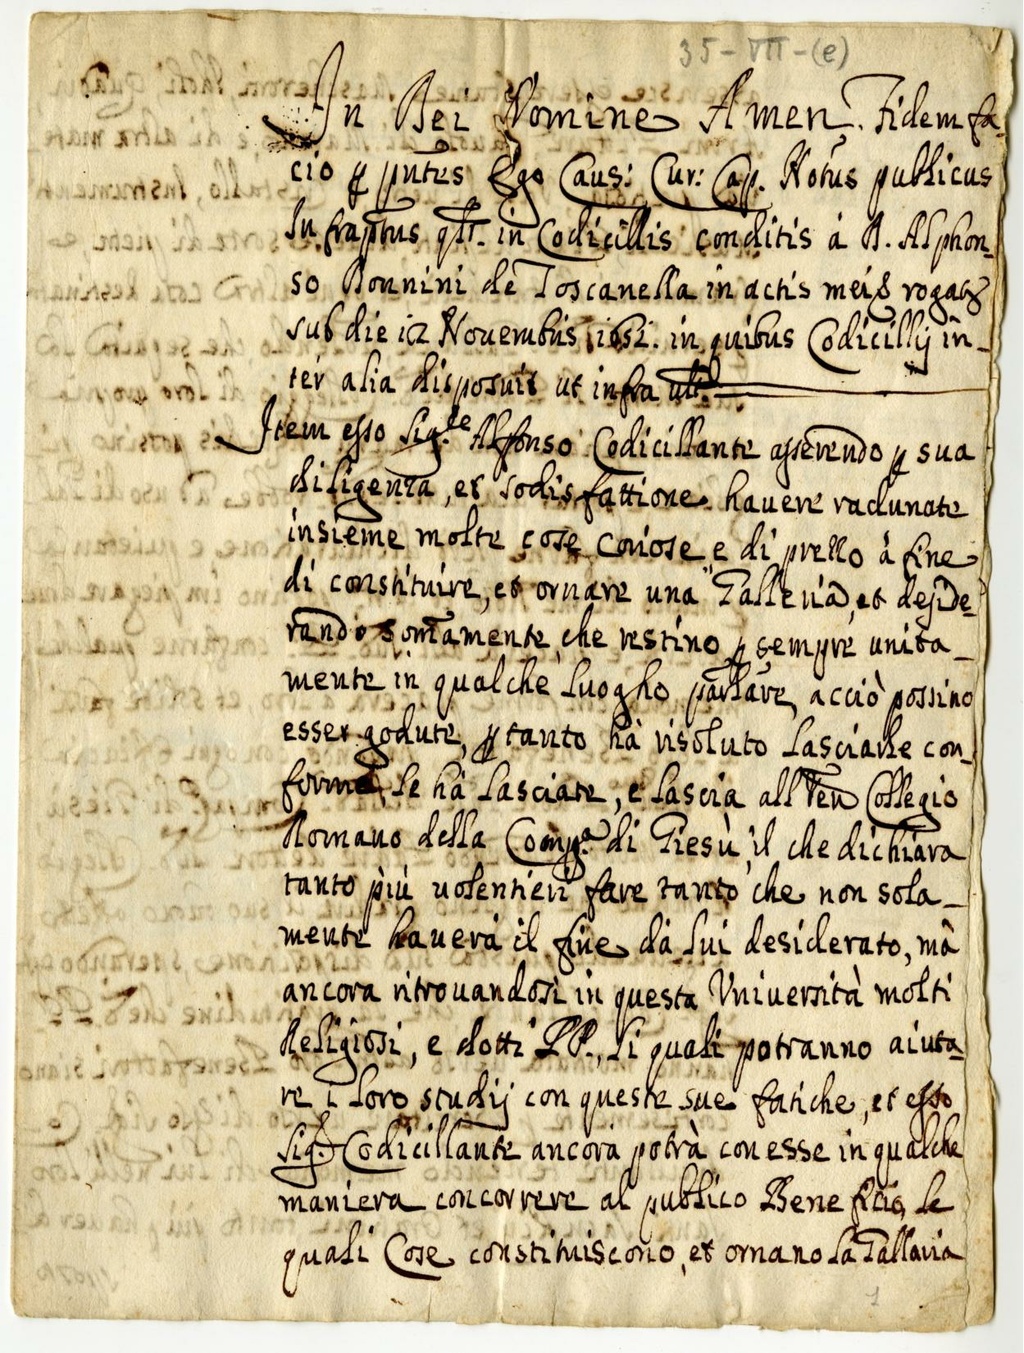 35-VII-(e)
In Dei Nomine Amen. Fidem fa-
cio p pntes Ego Caus: Cur: Cap. Notus publicus
Infraptus qlr. in Codicillis conditis à D. Alphon-
so Donnini de Toscanella in actis meis rogatis
sub die 12 Novembris 1651. in quibus Codicillij in-
ter alia disposuit ut infra
Item esso Sig.re Alfonso Codicillante asserendo p sua
diligenza, et sodisfattione havere radunate
insieme molte cose coriose e di prezzo à fine
di constituire, et ornare una Galleria, et deside-
rando som̃amente, che restino p sempre unita-
mente in qualche luogho parlare, acciò possino
esser godute, p tanto hà risoluto lasciarle con-
forme, le hà lasciate, e lascia all Ven Collegio
Romano della Compa. di Giesù, il che dichiara
tanto più volentieri fare tanto che non sola-
mente haverà il fine da lui desiderato, mà
ancora ritrovandosi in questa Università molti
Religiosi, e dotti PP., li quali potranno aiuta-
re i loro studij con queste sue fatiche, et esso
Sig.r Codicillante ancora potrà con esse in qualche
maniera concorrere al publico Beneficio, le
quali Cose constituiscono, et ornano la Gallaria
1